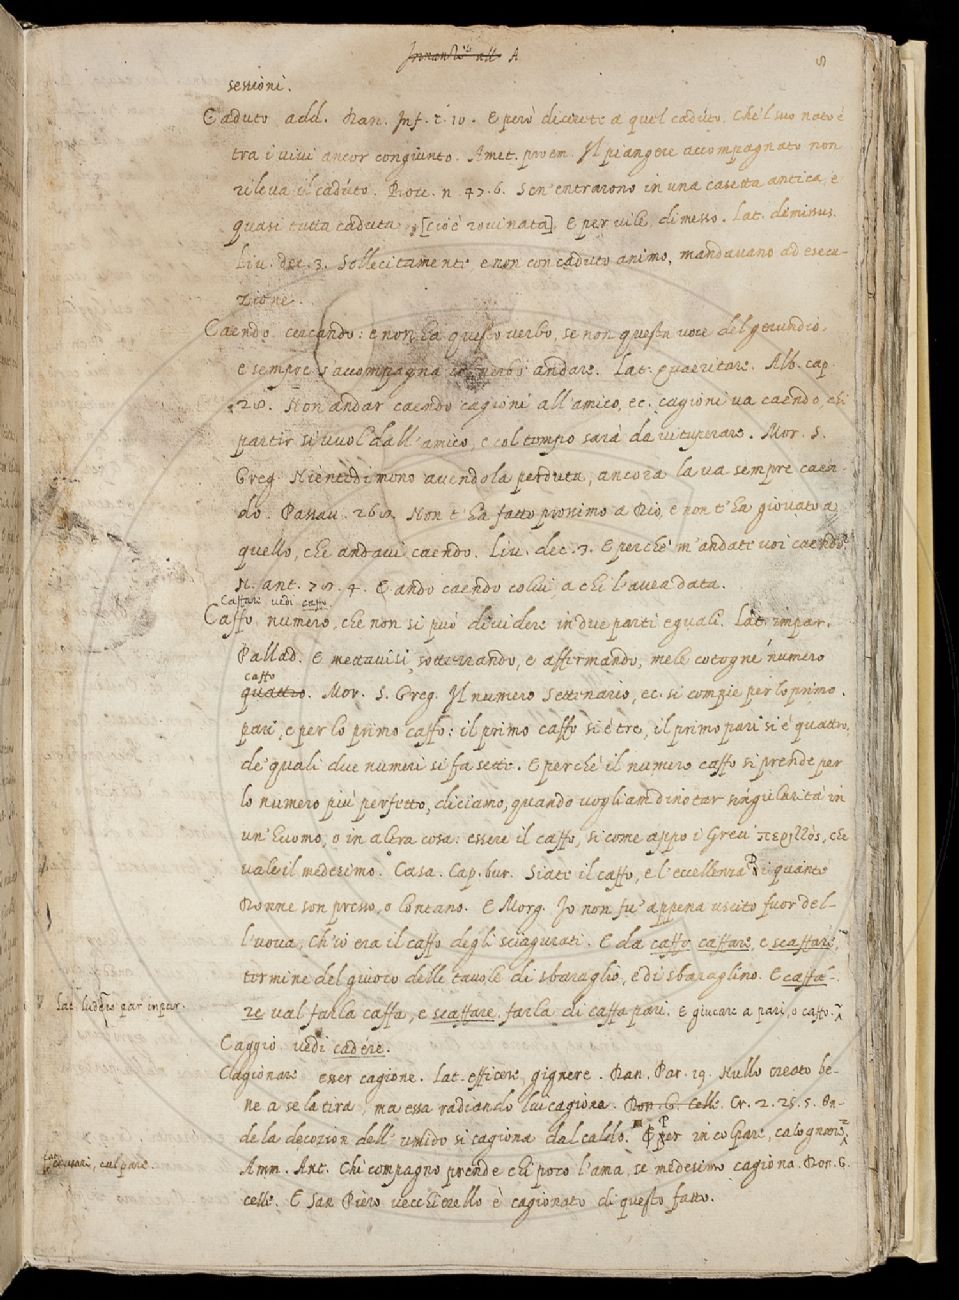 Innanzi all A
8
sessioni.
Caduto add. Dan. Inf. c. 10. E però dicerete a quel caduto, Che'l suo nato è
tra i vivi ancor congiunto. Amet. proem. Il piangere accompagnato non
rileva il caduto. Bocc. n. 47. 6. Sen'entrarono in una casetta antica, e
quasi tutta caduta [cioè rovinata]. E per vile, dimesso. Lat. demissus.
Liv. dec. 3. Sollecitamente e non con caduto animo, mandavano ad esecu-
zione.
Caendo. cercando: e non ha questo verbo, se non questa voce del gerundio,
e sempre s'accompagna col verbo andare. Lat. quaeritare. Alb. cap.
28. Non andar caendo cagioni all'amico, ec. cagioni va caendo, chi
partir si vuol dall'amico, e col tempo sarà da vituperare. Mor. S.
Greg. Nientedimeno avendola perduta, ancora la va sempre caen-
do. Passav. 268. Non t'ha fatto prossimo a Dio, e non t'ha giovato a
quello, che andavi caendo. Liv. dec. 3. E perchè m'andate voi caendo?
N. ant. 78. 4. E andò caendo colui, a chi l'avea data.
Caffare, vedi caffo.
Caffo. numero, che non si può dividere in due parti eguali. Lat. impar.
Pallad. E mettavisi sotterrando, e affermando, mele cotogne numero
caffo
quattro. Mor. S. Greg. Il numero settenario, ec. si compie per lo primo
pari, e per lo primo caffo: il primo caffo si è tre, il primo pari si è quattro,
de' quali due numeri si fa sette. E perchè il numero caffo si prende per
lo numero più perfetto, diciamo, quando vogliam dinotar singularità in
un'huomo, o in altra cosa: essere il caffo, sì come appo i Greci περιττὸς, che
vale il medesimo. Casa. Cap. bur. Siate il caffo, e l'eccellenza Di quante
Donne son presso, o lontano. E Morg. Io non fu' appena uscito fuor del-
l'uova, Ch'io era il caffo degli sciagurati. E da caffo caffare, e scaffare,
termine del giuoco delle tavole di sbaraglio, e di sbaraglino. E caffa-
re val farla caffa, e scaffare, farla di caffa pari. E giucare a pari, o caffo.
Lat. ludere par impar.
Caggio vedi cadere.
Cagionare esser cagione. Lat. efficere, gignere. Dan. Par. 19. Nullo creato be-
ne a se la tira, ma essa radiando lui cagiona. Don. G. Cell. Cr. 2. 25. 5. On-
de la decozion dell'umido si cagiona dal caldo. Per incolpare, calognare
Lat. accusari, culpare.
Amm. Ant. Chi compagno prende chi poco l'ama, se medesimo cagiona. Don. G.
Cell. E San Piero vecchierello è cagionato di questo fatto.